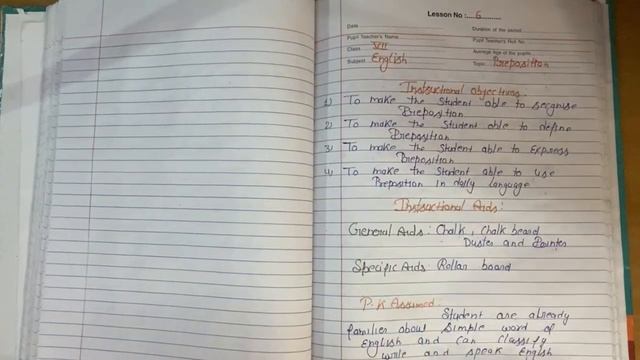 Lesson No :....6..........
Date
Duration of the period
Pupil Teacher's Name
Pupil Teacher's Roll No.
Class VIII
Average Age of the pupils
Subject English
Topic Preposition
Instructional objectives:
1) To make the student able to recognise
Preposition
2) To make the student able to define
Preposition
3) To make the student able to Express
Preposition
4) To make the student able to use
Preposition in daily language
Instructional Aids:
General Aids: Chalk, Chalk board
Duster and Pointer
Specific Aids Rollar board
P.K Assumed:
Student are already
familier about simple word of
English and can classify
write and speak English